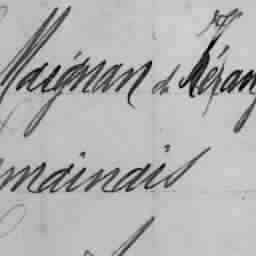 Maignan de Kérang
mainais